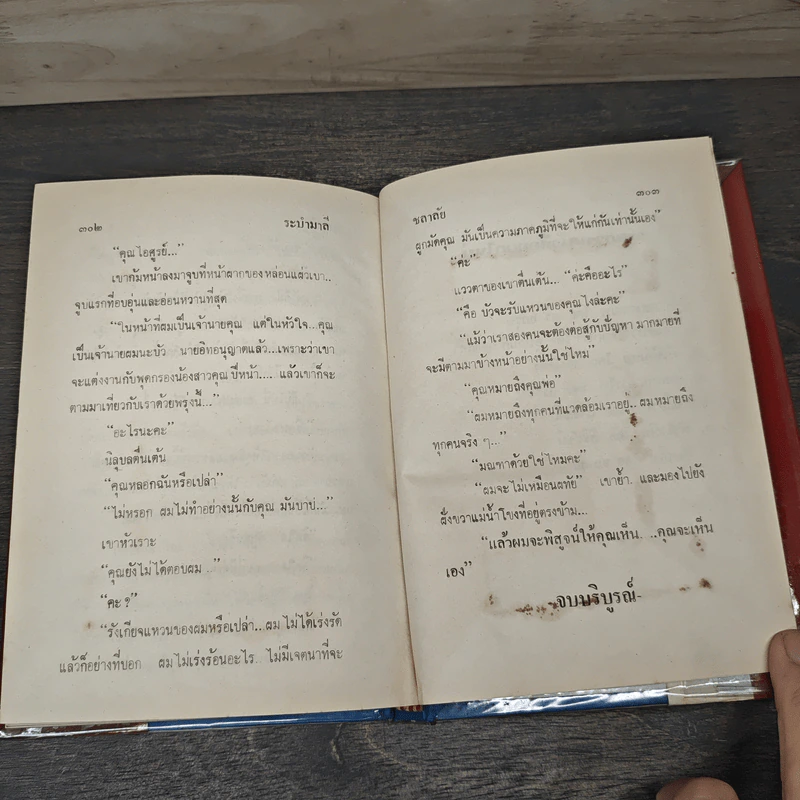 ๓๐๒
ระบำมาลี
“คุณไอศูรย์...”
เขาก้มหน้าลงมาจูบที่หน้าผากของหล่อนแผ่วเบา..
จูบแรกที่อบอุ่นและอ่อนหวานที่สุด
“ในหน้าที่ผมเป็นเจ้านายคุณ แต่ในหัวใจ...คุณ
เป็นเจ้านายผมนะบัว นายอิทอนุญาตแล้ว...เพราะว่าเขา
จะแต่งงานกับพุดกรองน้องสาวคุณปีหน้า.... แล้วเขาก็จะ
ตามมาเที่ยวกับเราด้วยพรุ่งนี้...”
“อะไรนะคะ”
นิลุบลตื่นเต้น
“คุณหลอกฉันหรือเปล่า”
“ไม่หรอก ผมไม่ทำอย่างนั้นกับคุณ มันบาป...”
เขาหัวเราะ
“คุณยังไม่ได้ตอบผม ...”
“คะ ?”
“รังเกียจแหวนของผมหรือเปล่า...ผมไม่ได้เร่งรัด
แล้วก็อย่างที่บอก ผมไม่เร่งร้อนอะไร.. ไม่มีเจตนาที่จะ
ชลาลัย
๓๐๓
ผูกมัดคุณ มันเป็นความภาคภูมิที่จะให้แก่กันเท่านั้นเอง”
“ค่ะ”
แววตาของเขาตื่นเต้น... “ค่ะคืออะไร”
“คือ บัวจะรับแหวนของคุณไงล่ะคะ”
“แม้ว่าเราสองคนจะต้องต่อสู้กับปัญหา มากมายที่
จะมีตามมาข้างหน้าอย่างนั้นใช่ไหม”
“คุณหมายถึงคุณพ่อ”
“ผมหมายถึงทุกคนที่แวดล้อมเราอยู่.. ผมหมายถึง
ทุกคนจริง ๆ...”
“มณฑาด้วยใช่ไหมคะ”
“ผมจะไม่เหมือนผทัย” เขาย้ำ. และมองไปยัง
ฝั่งขวาแม่น้ำโขงที่อยู่ตรงข้าม...
“แล้วผมจะพิสูจน์ให้คุณเห็น. ...คุณจะเห็น
เอง”
-จบบริบูรณ์-